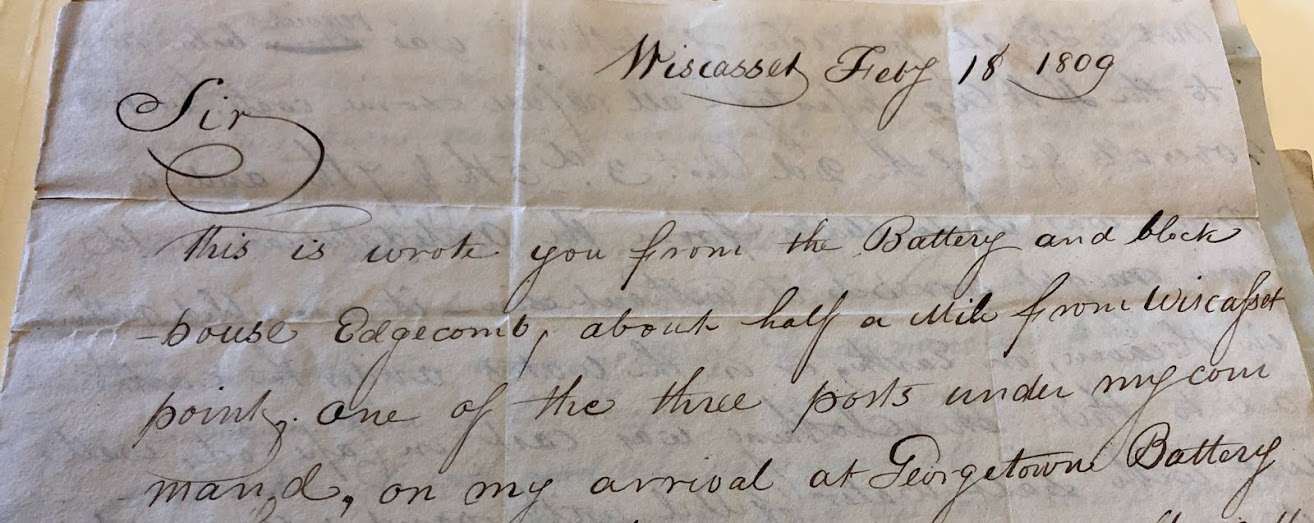 Wiscasset Feby 18 1809
Sir
This is wrote you from the Battery and block
-house Edgecomb, about half a Mile from Wiscasset
point, one of the three posts under my com
mand, on my arrival at Georgetown Battery